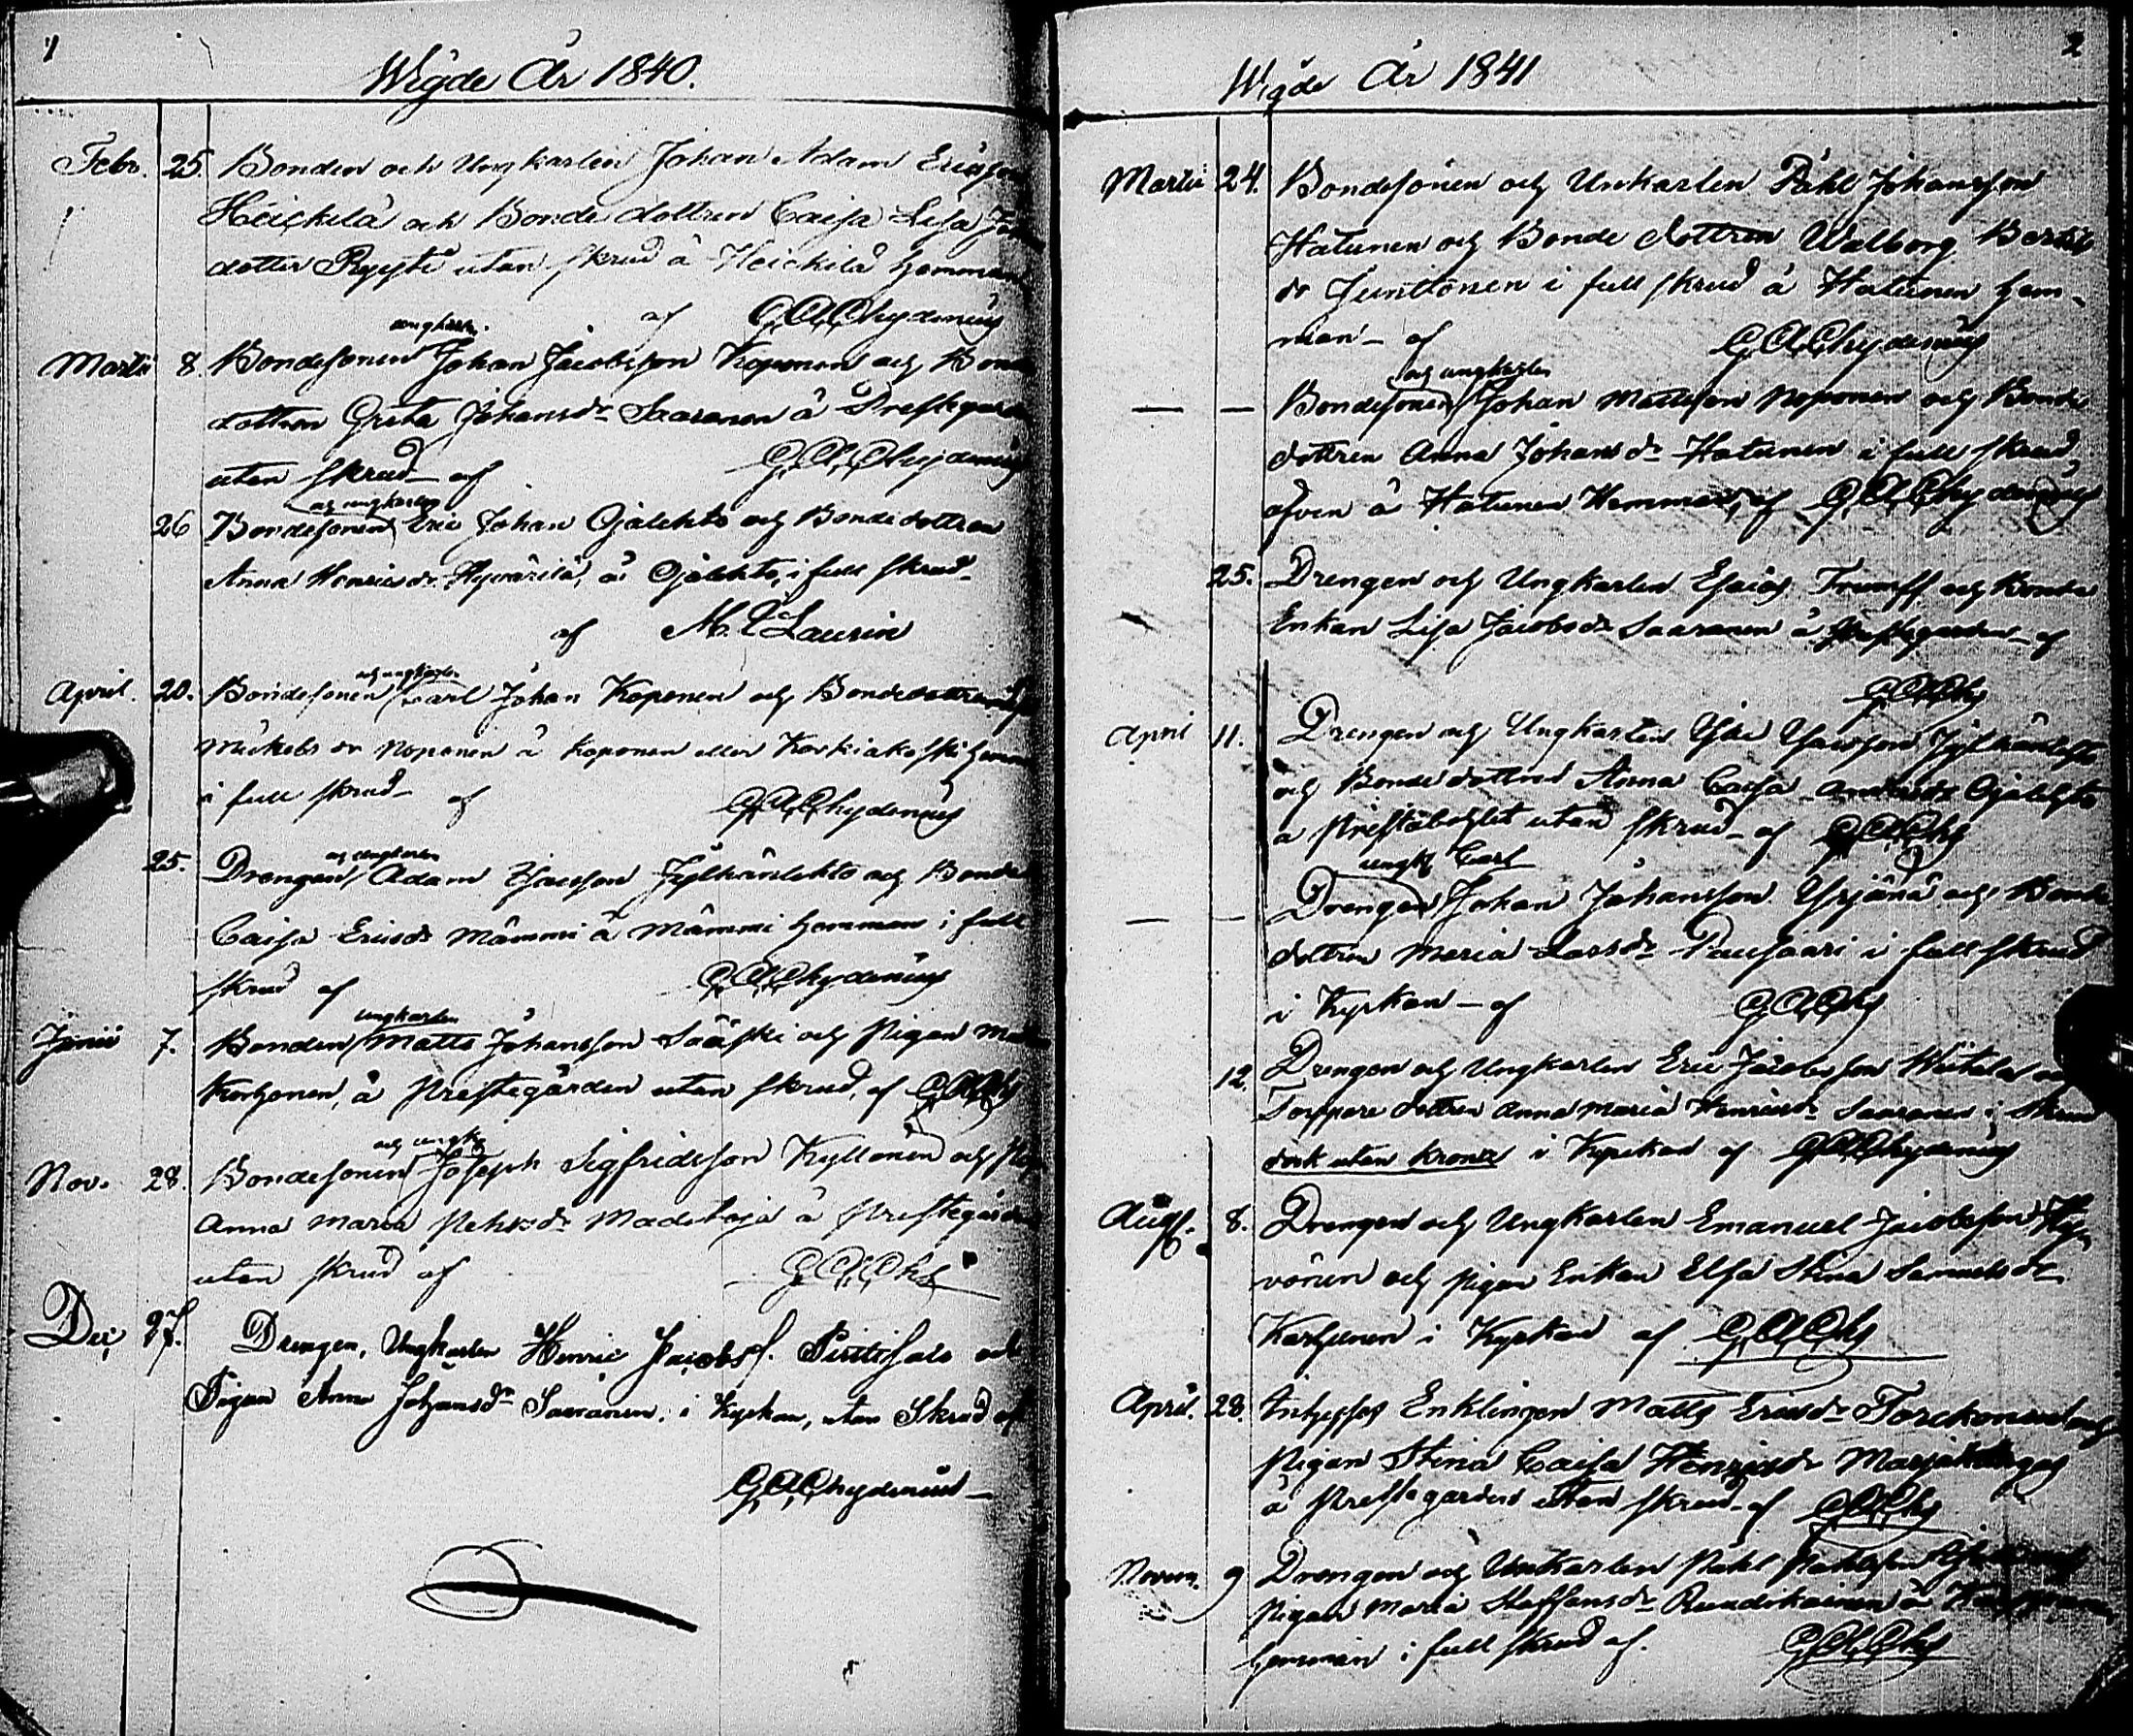 1
Wigde År 1840.
Febr. 25. Bonden och Ungkarlen Johan Adam Ericsson
Heickilä och Bonde dottren Caisa Lisa
dotter utan skrud å Heickilä hemman
af G.A.Chydenius
ungkarlen
Martii 8. Bondesonen Johan Jacobsson Koponen och Bonde
dottren Greta Johansdr Saaranen å Prestegården
utan skrud af G.A.Chydenius
och ungkarlen
26 Bondesonen Eric Johan Ojalehto och Bondedottren
Anna Henricsdr Hyvärilä, å Ojalehto, i full skrud
af M. Laurin
och ungkarlen
April. 20. Bondesonen Carl Johan Koponen och Bondedottren
Mickels dr Noponen å Koponen eller Karkiakoski hemman
i full skrud af G.A.Chydenius
och ungkarlen
25. Drengen Adam Esaiasson Jylhänlehto och Bonde
Caisa Ericsdr Mämmi å Mämmi hemman i full
skrud af G.A.Chydenius
ungkarlen
Junii 7. Bonden Matts Johansson Sääski och Pigan
Korhonen, å Prestegården utan skrud, af G.A.Chs
och ungk
Nov. 28. Bondesonen Joseph Sigfridsson Kyllönen och
Anna Maria Pehrsdr Madetoja å Prestegården
utan skrud af G.A.Chs
Dec. 27. Drengen, Ungkarlen Henric Jacobss. Pirttisalo och
Pigan Anna Johansdr Saaranen, i Kyrkan, utan Skrud af
G.A.Chydenius
2
Wigde År 1841
Martii 24. Bondesonen och Unkarlen Påhl Johansson
Hatunen och Bonde dottren Walborg Bertils
dr Junttonen i full skrud å Hatunen hem-
man - af G.A.Chydenius
och ungkarlen
— — Bondesonen Johan Mattsson Noponen och Bonde
dottren Anna Johansdr Hatunen i full skrud,
äfven å Hatunen Hemman, af G.A.Chydenius
25. Drengen och Ungkarlen Esaias Trumff och Bonde
Enkan Lisa Jacobsdr Saaranen å Prestegården af
G.A.Chs
April 11. Drengen och Ungkarlen Esaiasson Jylhänlehto
och Bonde dottren Anna Caisa Andersdr Ojalehto
å Prestabohlet utan skrud af G.A.Chs
ungk Carl
— — Drengen Johan Johansson Yrjänä och Bonde
dottren Maria Larsdr Pausaari i full skrud
i Kyrkan - af G.A.Chs
12. Drengen och Ungkarlen Eric Jacobsson Wiitala och
Torppare dottren Anna Maria Henricsdr Saaranen i Skrud
dock utan krona i Kyrckan af G.A.Chydenius
Aug. 8. Drengen och Ungkarlen Emanuel Jacobsson Hy-
vönen och pigan Enkan Elsa Stina Samuelsdr
Karhunen i Kyrkan af G.A.Chs
April. 28. Inhyses Enklingen Matts Ericsdr Torckonen och
Pigan Stina Caisa Henricsdr Marjakangas
å Prestegården utan skrud af G.A.Chs
Novem. 9 Drengen och Unkarlen Påhl Påhlsson
Pigan Maria Staffansdr Ruuskainen å
hemman i full skrud af. G.A.Chs